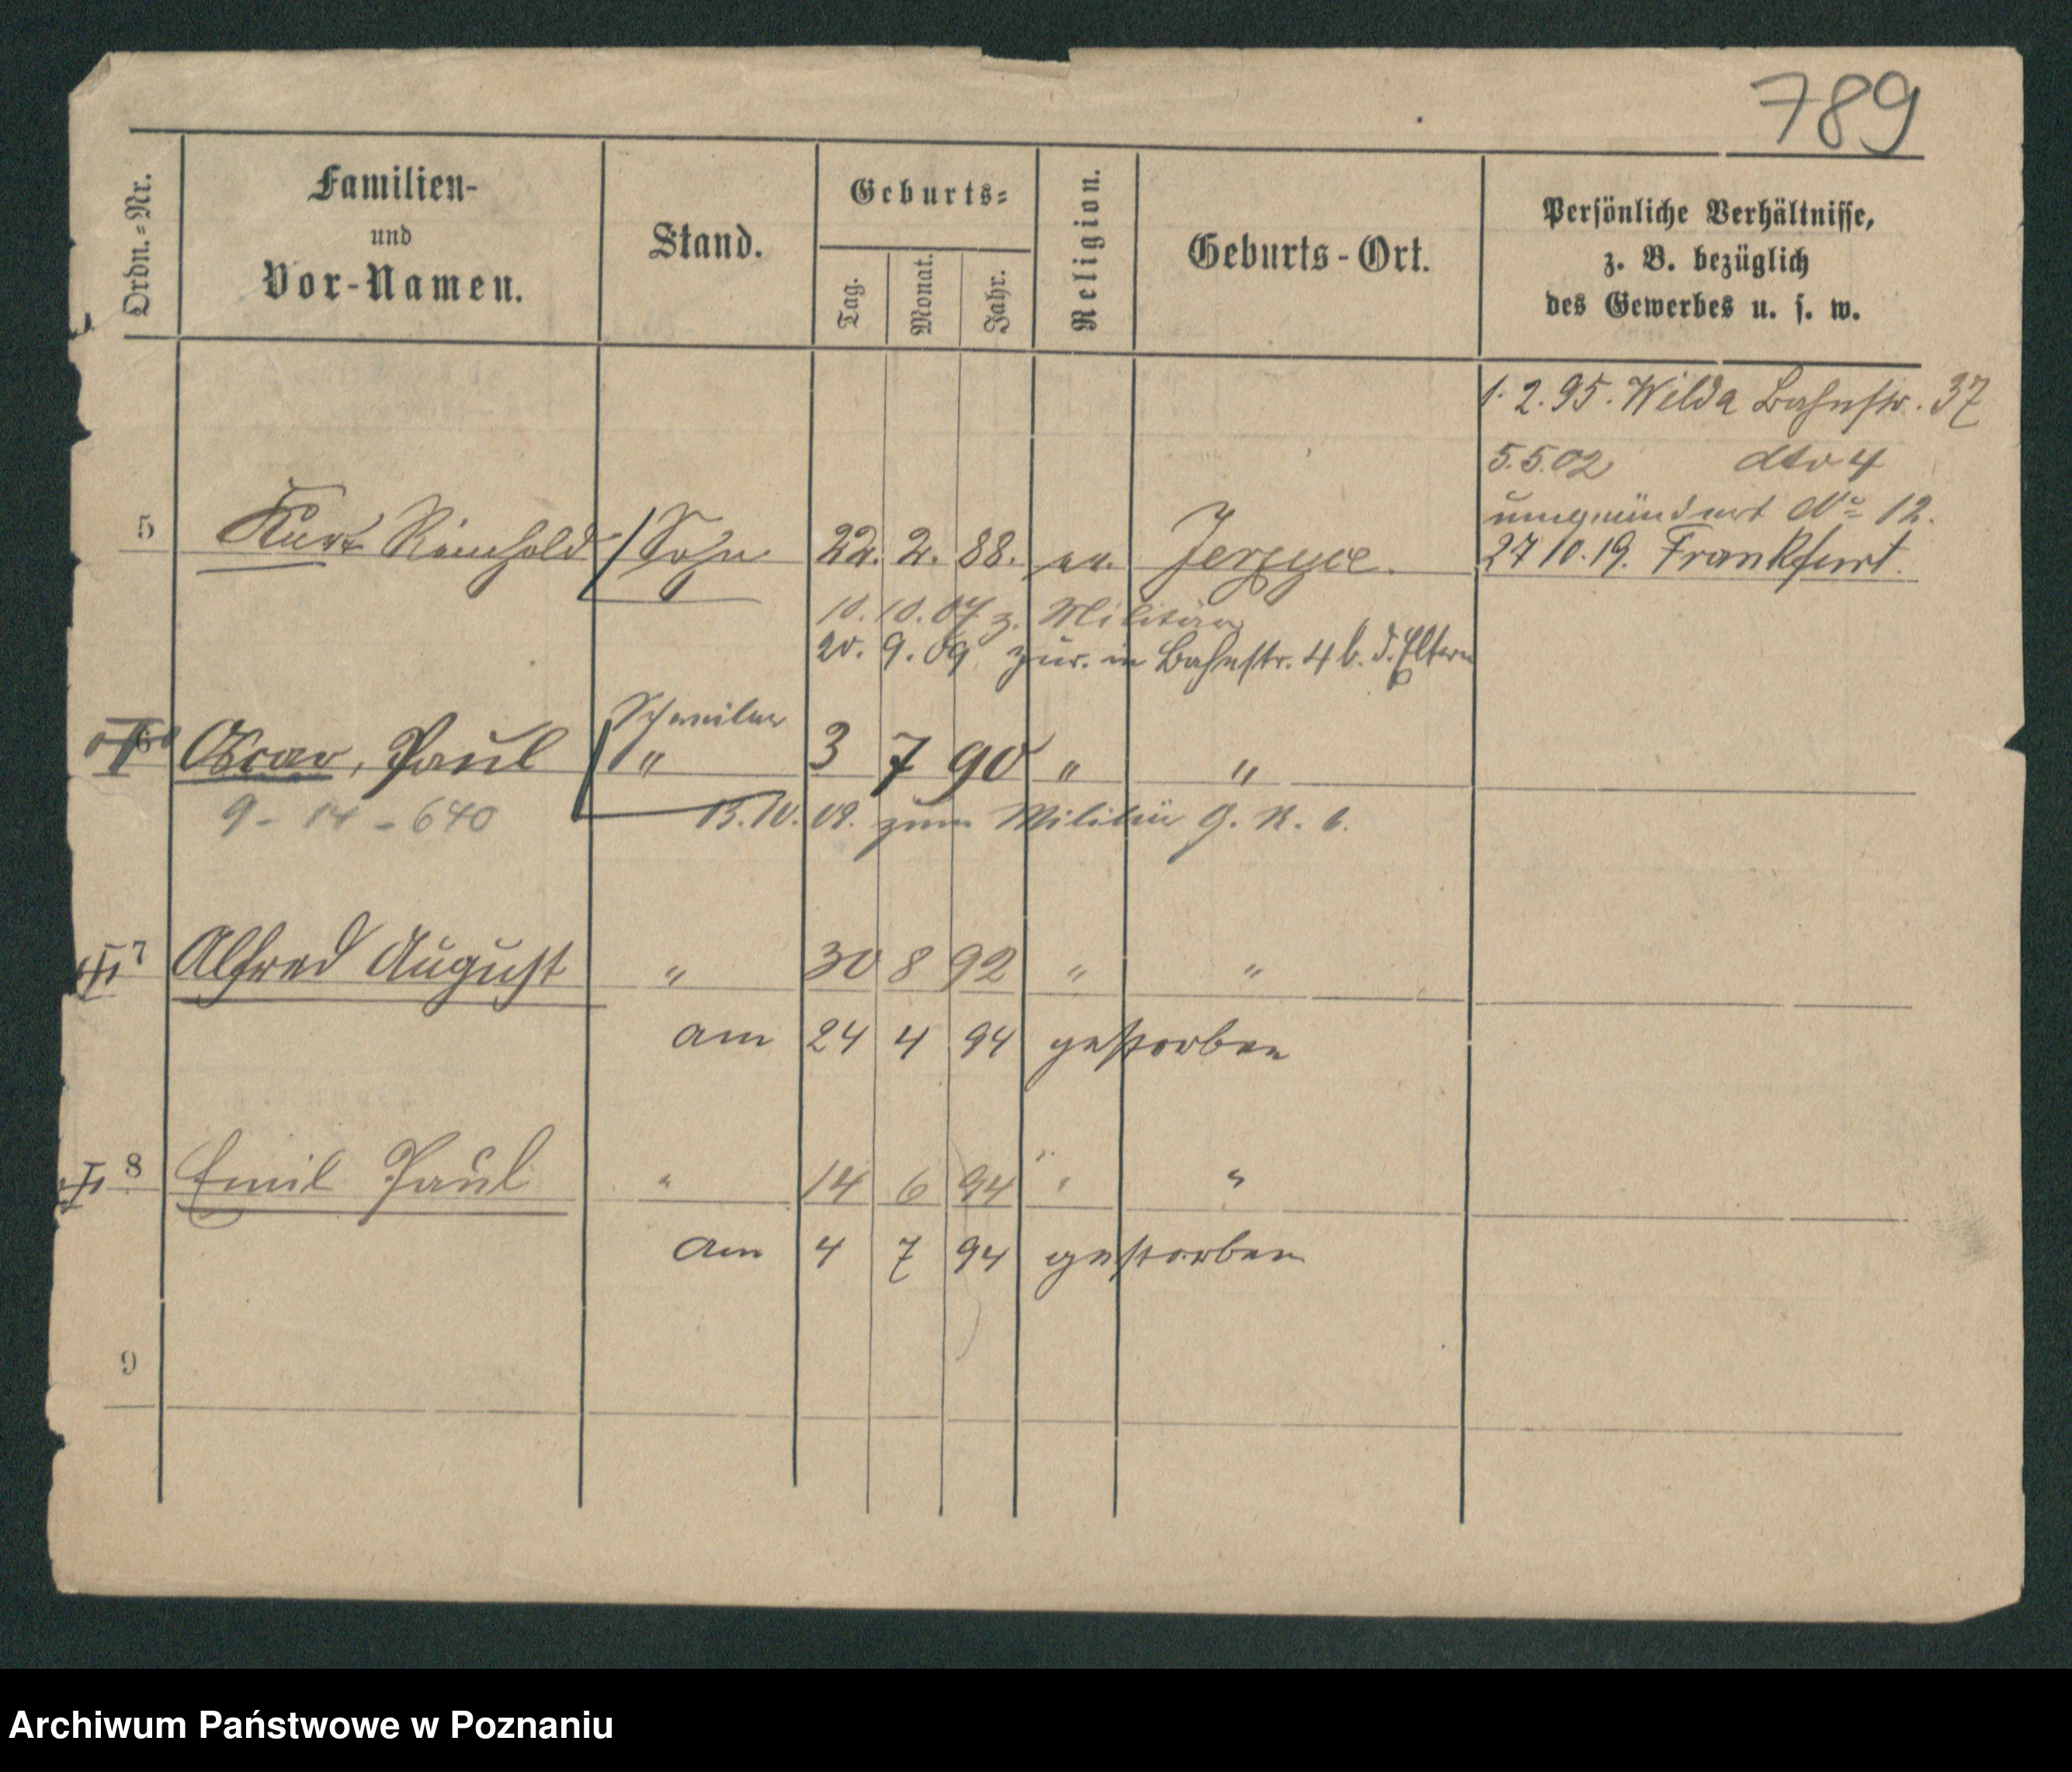 789
Ordn.-Nr.
Familien-
und
Vor-Namen.
Stand.
Geburts-
Tag.
Monat.
Jahr.
Religion.
Geburts-Ort.
Persönliche Verhältnisse,
z. B. bezüglich
des Gewerbes u. s. w.
1. 2. 95. Wilda Bahnstr. 37
5.5.02 dto 4
umgenändert No 12.
5 Kurt Reinhold Sohn 22. 2. 88. ev. Jerzyce. 27 10. 19. Frankfurt.
10. 10. 07 z. Militär
20. 9. 09 zur. in Bahnstr. 4 b. d. Eltern
6 Oscar, Paul " 3 7 90 " "
9 - 14 - 640
13. 10. 09. zum Militär G. R. 6.
7 Alfred August " 30 8 92 " "
am 24 4 94 gestorben
8 Emil Paul " 14 6 94 " "
am 4 7 94 gestorben
9
Archiwum Państwowe w Poznaniu